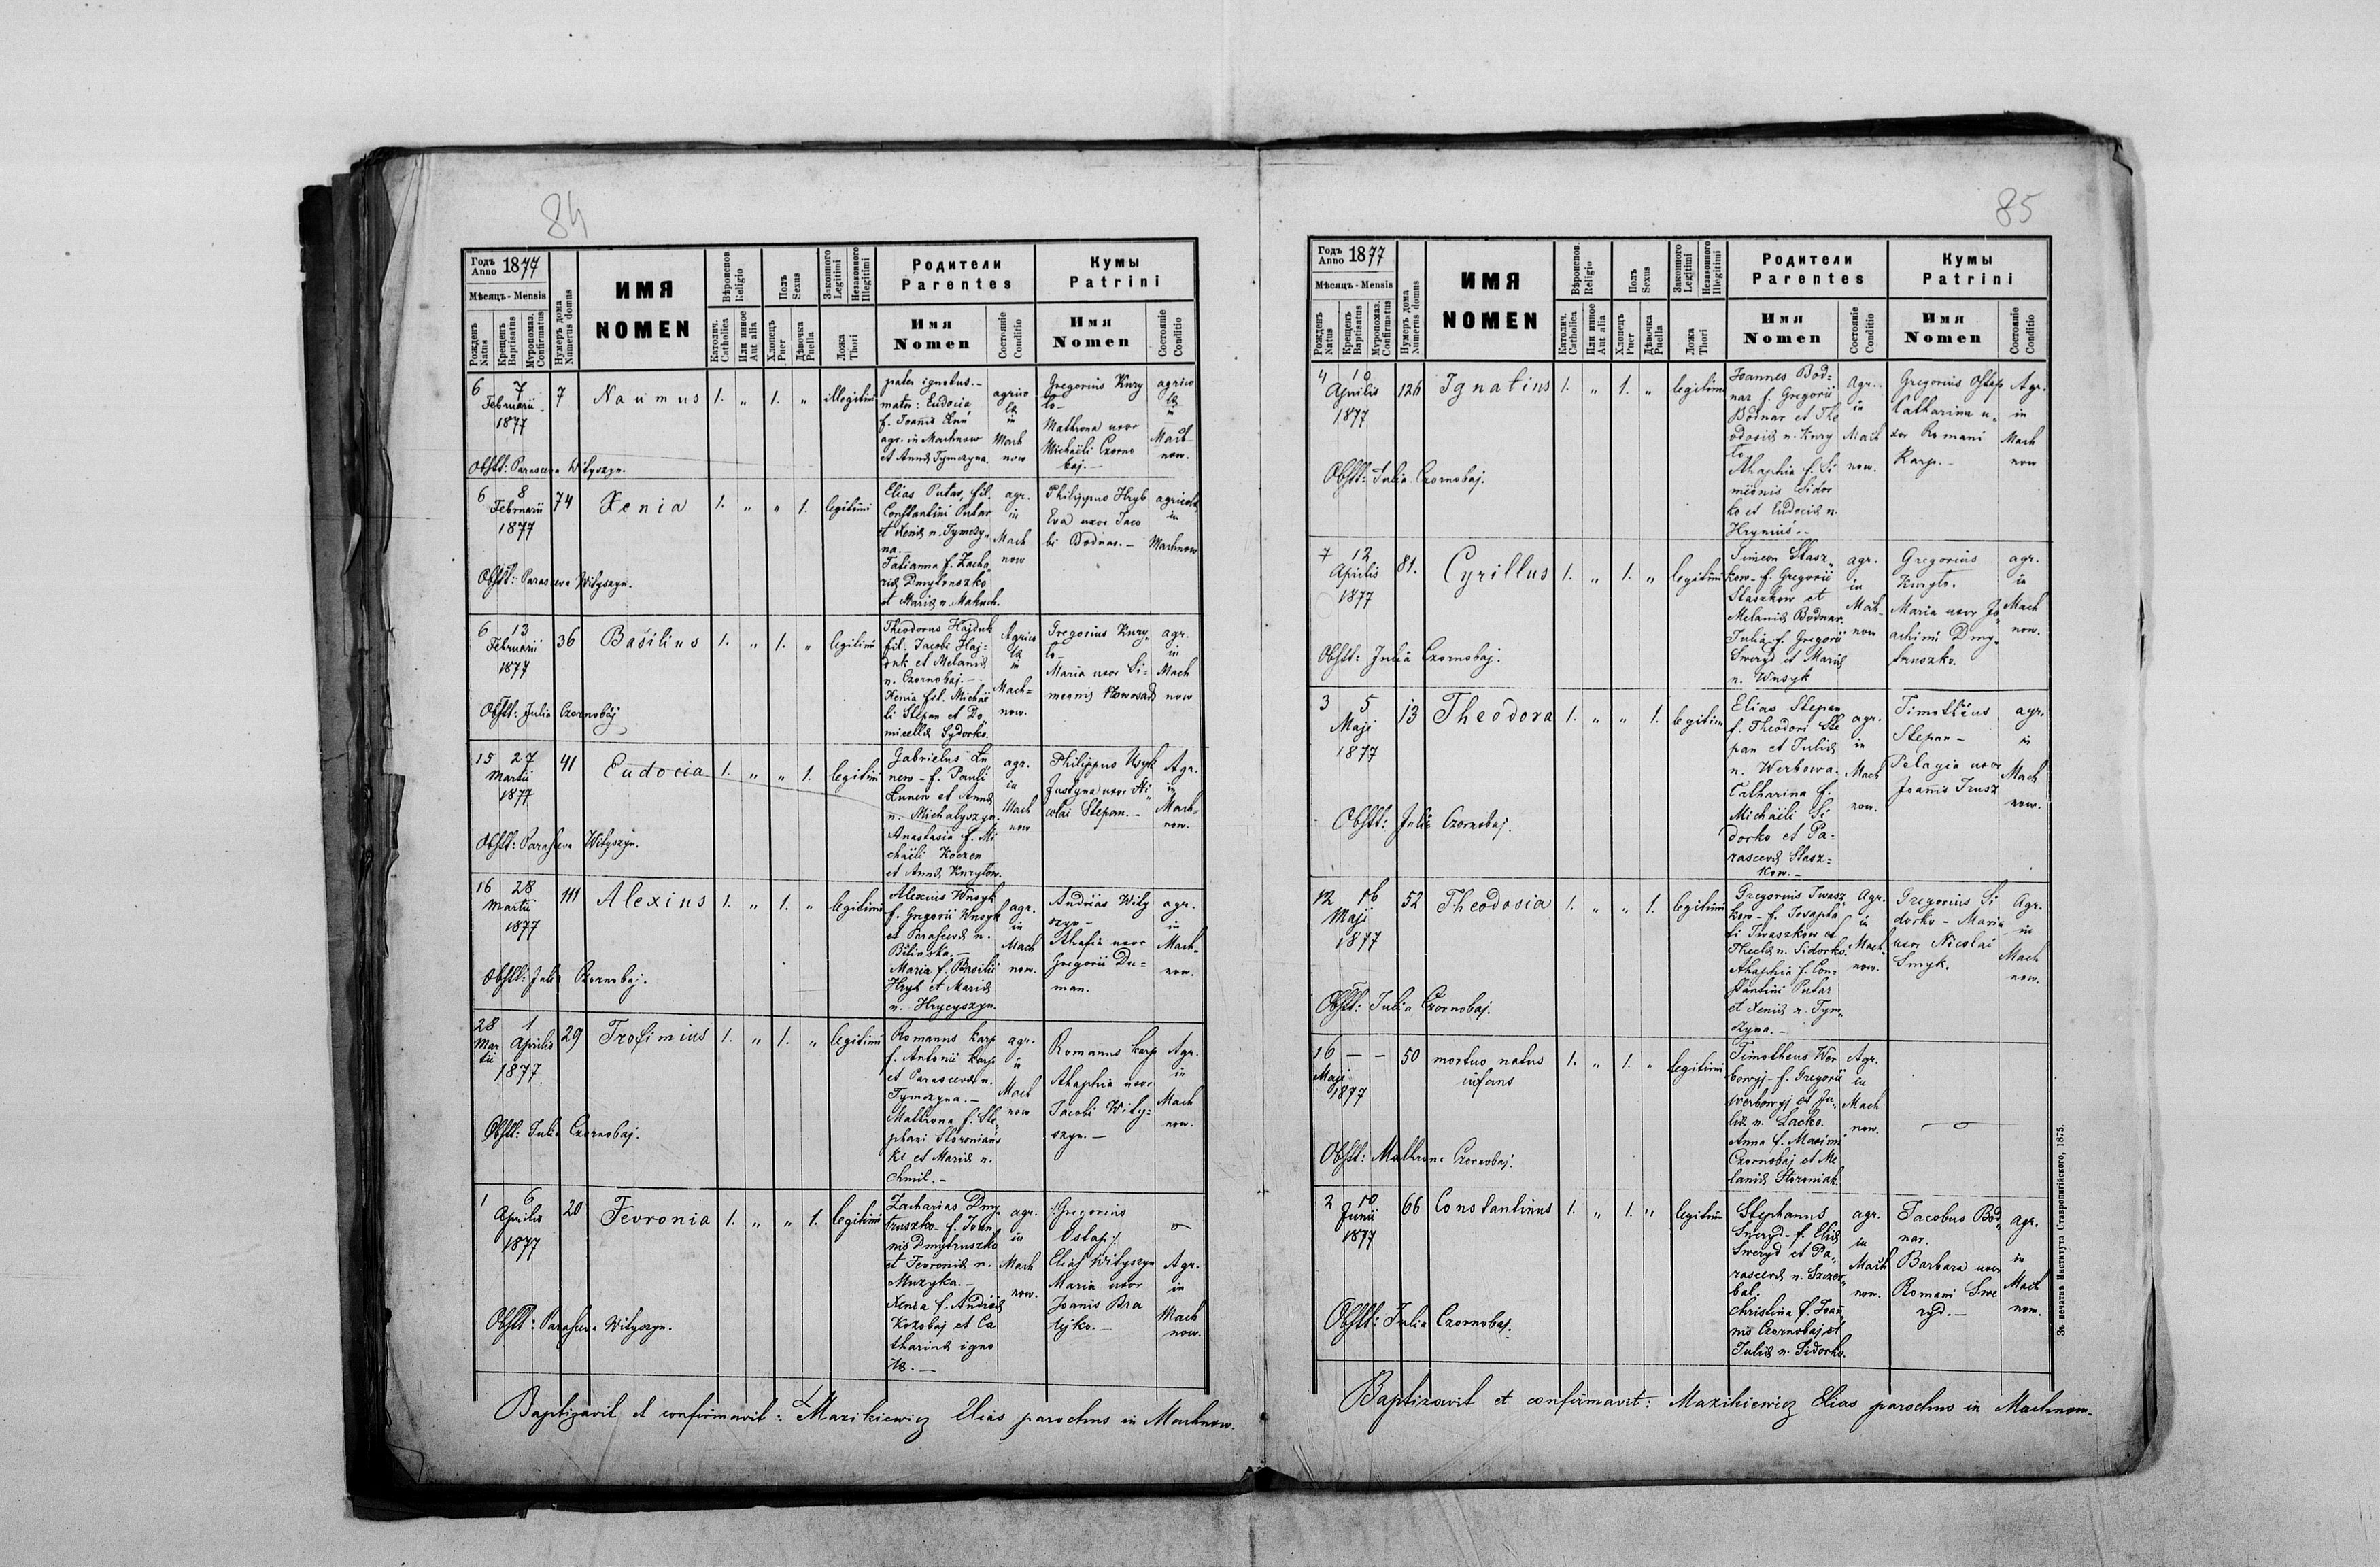 84
Годъ Anno 1877
Мѣсяцъ - Mensis
Рожденъ Natus
Крещенъ Baptisatus
Мѵропомаз. Confirmatus
Нумеръ дома Numerus domus
ИМЯ
NOMEN
Вѣроисповѣд. Religio
Католич. Catholica
Или иное Aut alia
Полъ Sexus
Хлопецъ Puer
Дѣвочка Puella
Законного Legitimi
Незаконного Illegitimi
Ложа Thori
Родители
Parentes
Имя
Nomen
Состояніе Conditio
Кумы
Patrini
Имя
Nomen
Состояніе Conditio
6 7
Februarii
1877
7
Naumus
1. " 1. "
illegitimi
pater ignotus.-
mater: Eudocia
f. Joannis
agr. in Machnow
et Annæ Tymczyna.
agrico
læ
in
Mach
now
Gregorius Kury
lo-
Mathrona uxor
Michaëli Czorno
baj.-
agrico
læ
in
Mach-
now.
Obstt: Parasceva Wityszyn.
6 8
Februarii
1877
74
Xenia
1. " " 1.
legitimi
Elias Putar, fil.
Constantini Putar
et Xeniæ n. Tymczy-
na.-
Tatianna f. Zacha-
riæ Dmytruszko
et Mariæ n. Makuch.
agr.
in
Mach
now
Philippus Hryb
Eva uxor Jaco
bi Bodnar.-
agricolæ
in
Machnow
Obstt: Parasceva Wityszyn.
6 13
Februarii
1877
36
Basilius
1. " 1. "
legitimi
Theodorus Hajduk
fil. Jacobi Haj-
duk et Melaniæ
n. Czornobaj.-
Xenia fil. Michaë
li Stepan et Do
micellæ Sydorko.
Agrico
læ
in
Mach=
now.
Gregorius Kury-
lo-
Maria uxor Si-
meonis Nowosad
agr.
in
Mach
now
Obstt: Julia Czornobaj
15 27
Martii
1877
41
Eudocia
1. " " 1.
legitimi
Gabrielus Łu
new - f. Pauli
Łunew et Annæ
n. Michalyszyn.
Anastasia f. Mi
chaëli Koczon
et Annæ Kuryłow.
agr.
in
Mach
now
Philippus Usyk
Justyna uxor Ni-
colai Stepan.-
Agr.
in
Mach-
now.
Obstt: Parasceva Wityszyn.
16 28
Martii
1877
111
Alexius
1. " 1. "
legitimi
Alexius Wusyk
f. Gregorii Wusyk
et Parascevæ n.
Bilinska.-
Maria f. Basilii
Hryb et Mariæ
n. Hrycyszyn.
agr.
in
Mach
now.
Andreas Wity
szyn-
Ahafia uxor
Gregorii Du=
man.
agr.
in
Mach-
now.
Obstt: Julia Czornobaj.
28 1
Martii Aprilis
1877
29
Trofimius
1. " 1. "
legitimi
Romanus Karp
f. Antonii Karp
et Parascevæ n.
Tymczyna.-
Mathrona f. Ste
phani Storonians
ki et Mariæ n.
Chmil.-
agr.
in
Mach
now
Romanus Karp
Ahaphia uxor
Jacobi Wity=
szyn.-
Agr.
in
Mach
now.
Obstt: Julia Czornobaj.
1 6
Aprilis
1877
20
Fevronia
1. " " 1.
legitimi
Zacharias Dmy-
truszko - f. Joan
nis Dmytruszko
et Fevroniæ n.
Muzyka.-
Xenia f. Andreæ
Kozobaj et Ca
tharinæ igno
tæ.-
agr.
in
Mach
now.
/:Gregorius
Ostap:/
Elias Wityszyn
Maria uxor
Joanis Bra
tejko.-
Agr.
in
Mach
now.
Obstt: Parasceva Wityszyn.
Baptizavit et confirmavit: Mazikiewicz Elias parochus in Machnow.
85
Годъ Anno 1877
Мѣсяцъ - Mensis
Рожденъ Natus
Крещенъ Baptisatus
Мѵропомаз. Confirmatus
Нумеръ дома Numerus domus
ИМЯ
NOMEN
Вѣроисповѣд. Religio
Католич. Catholica
Или иное Aut alia
Полъ Sexus
Хлопецъ Puer
Дѣвочка Puella
Законного Legitimi
Незаконного Illegitimi
Ложа Thori
Родители
Parentes
Имя
Nomen
Состояніе Conditio
Кумы
Patrini
Имя
Nomen
Состояніе Conditio
4 10
Aprilis
1877
126
Ignatius
1. " 1. "
legitimi
Joannes Bod=
nar f. Gregorii
Bodnar et The
odosiæ n. Kury
lo
Ahaphia f. Si
meonis Sidor
ko et Eudociæ n.
Hryniuś.-
Agr.
in
Mach
now.
Gregorius Ostap
Catharina u-
xor Romani
Karp.-
Agr.
in
Mach
now
Obstt: Julia Czornobaj.
7 12
Aprilis
1877
81.
Cyrillus
1. " 1. "
legitimi
Simeon Stasz-
kow - f. Gregorii
Staszkow et
Melaniæ Bodnar.
Julia f. Gregorii
Sweryd et Mariæ
n. Wusyk
agr.
in
Mach-
now
Gregorius
Kurylo.
Maria uxor Jo
achimi Dmy-
truszko.
agr.
in
Mach
now.
Obstt: Julia Czornobaj.
3 5
Maji
1877
13
Theodora
1. " " 1.
legitimi
Elias Stepan
f. Theodori Ste
pan et Juliæ
n. Werbowa.
Catharina f.
Michaëli Si
dorko et Pa=
rascevæ Stasz=
kow.-
agr.
in
Mach
now.
Timotheus
Stepan-
Pelagia uxor
Joannis Trusz
agr.
in
Mach
now.
Obstt: Julia Czornobaj.
12 16
Maji
1877
52
Theodosia
1. " " 1.
legitimi
Gregorius Iwasz
kow - f. Josapha
ti Iwaszkow et
Theclæ n. Sidorko.
Ahaphia f. Con-
stantini Putar
et Xeniæ n. Tym-
czyna.-
Agr.
in
Mach-
now.
Gregorius Si
dorko - Maria
uxor Nicolai
Smyk.
Agr.
in
Mach
now.
Obstt: Julia Czornobaj.
16 - -
Maji
1877
50
mortuo natus
infans
1. " 1. "
legitimi
Timotheus Wer
bowyj - f. Gregorii
Werbowyj et Ju-
liæ n. Lacko.
Anna f. Maximi
Czornobaj et Me
laniæ Storoniak.
Agr.
in
Mach
now.
Obstt: Mathrona Czornobaj.
2 10
Junii
1877
66
Constantinus
1. " 1. "
legitimi
Stephanus
Sweryd - f. Eliæ
Sweryd et Pa-
rascevæ n. Szczer-
bal.
Christina f. Joan
nis Czornobaj et
Juliæ n. Sidorko.
agr.
in
Mach
now.
Jacobus Bod-
nar.
Barbara uxor
Romani Swe
ryd.-
agr.
in
Mach
now.
Obstt: Julia Czornobaj.
Baptizavit et confirmavit: Mazikiewicz Elias parochus in Machnow.
Зъ печатнѣ Института Ставропигійского, 1875.